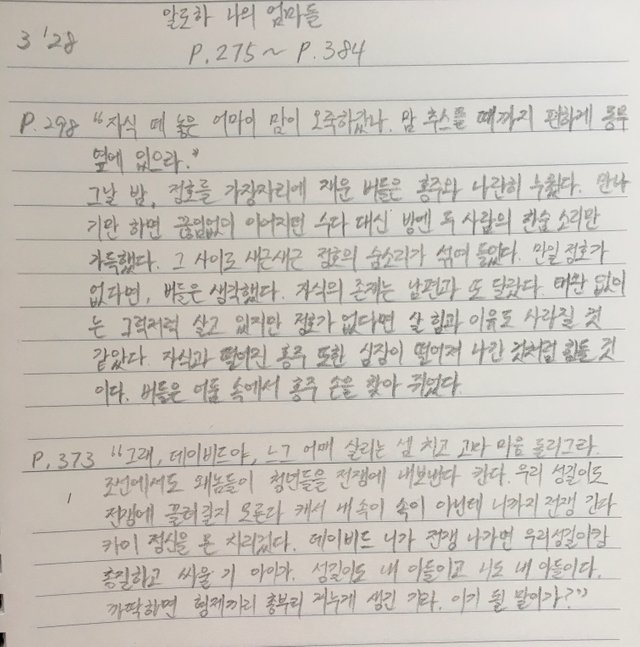 알로하 나의 엄마들
3 '28
P.275 ~ P.384
P.298 "자식 떼 놓은 어마이 맘이 오죽하갔나. 맘 추스를 때까지 편하게 동무
옆에 있으라."
그날 밤, 정호를 가장자리에 재운 버들은 홍주와 나란히 누웠다. 만나
기만 하면 끊임없이 이어지던 수다 대신 방엔 두 사람의 한숨 소리만
가득했다. 그 사이로 새근새근 정호의 숨소리가 섞여 들었다. 만일 정호가
없다면, 버들은 생각했다. 자식의 존재는 남편과 또 달랐다. 태완 없이
는 그럭저럭 살고 있지만 정호가 없다면 살 힘과 이유도 사라질 것
같았다. 자식과 떨어진 홍주 또한 심장이 떨어져 나간 것처럼 힘들 것
이다. 버들은 어둠 속에서 홍주 손을 찾아 쥐었다.
P.373 "그래, 데이비드야, 느그 어매 살리는 셈 치고 고마 마음 돌리그라.
조선에서도 왜놈들이 청년들을 전쟁에 내보낸다 칸다. 우리 성길이도
전쟁에 끌려갈지 모른다 캐서 내 속이 속이 아닌데 니까지 전쟁 간다
카이 정신을 몬 차리겄다. 데이비드 니가 전쟁 나가면 우리 성길이캉
총질하고 싸울 기 아이가. 성길이도 내 아들이고 너도 내 아들이다.
까딱하면 형제끼리 총부리 겨누게 생긴 기라. 이기 될 말이가?"